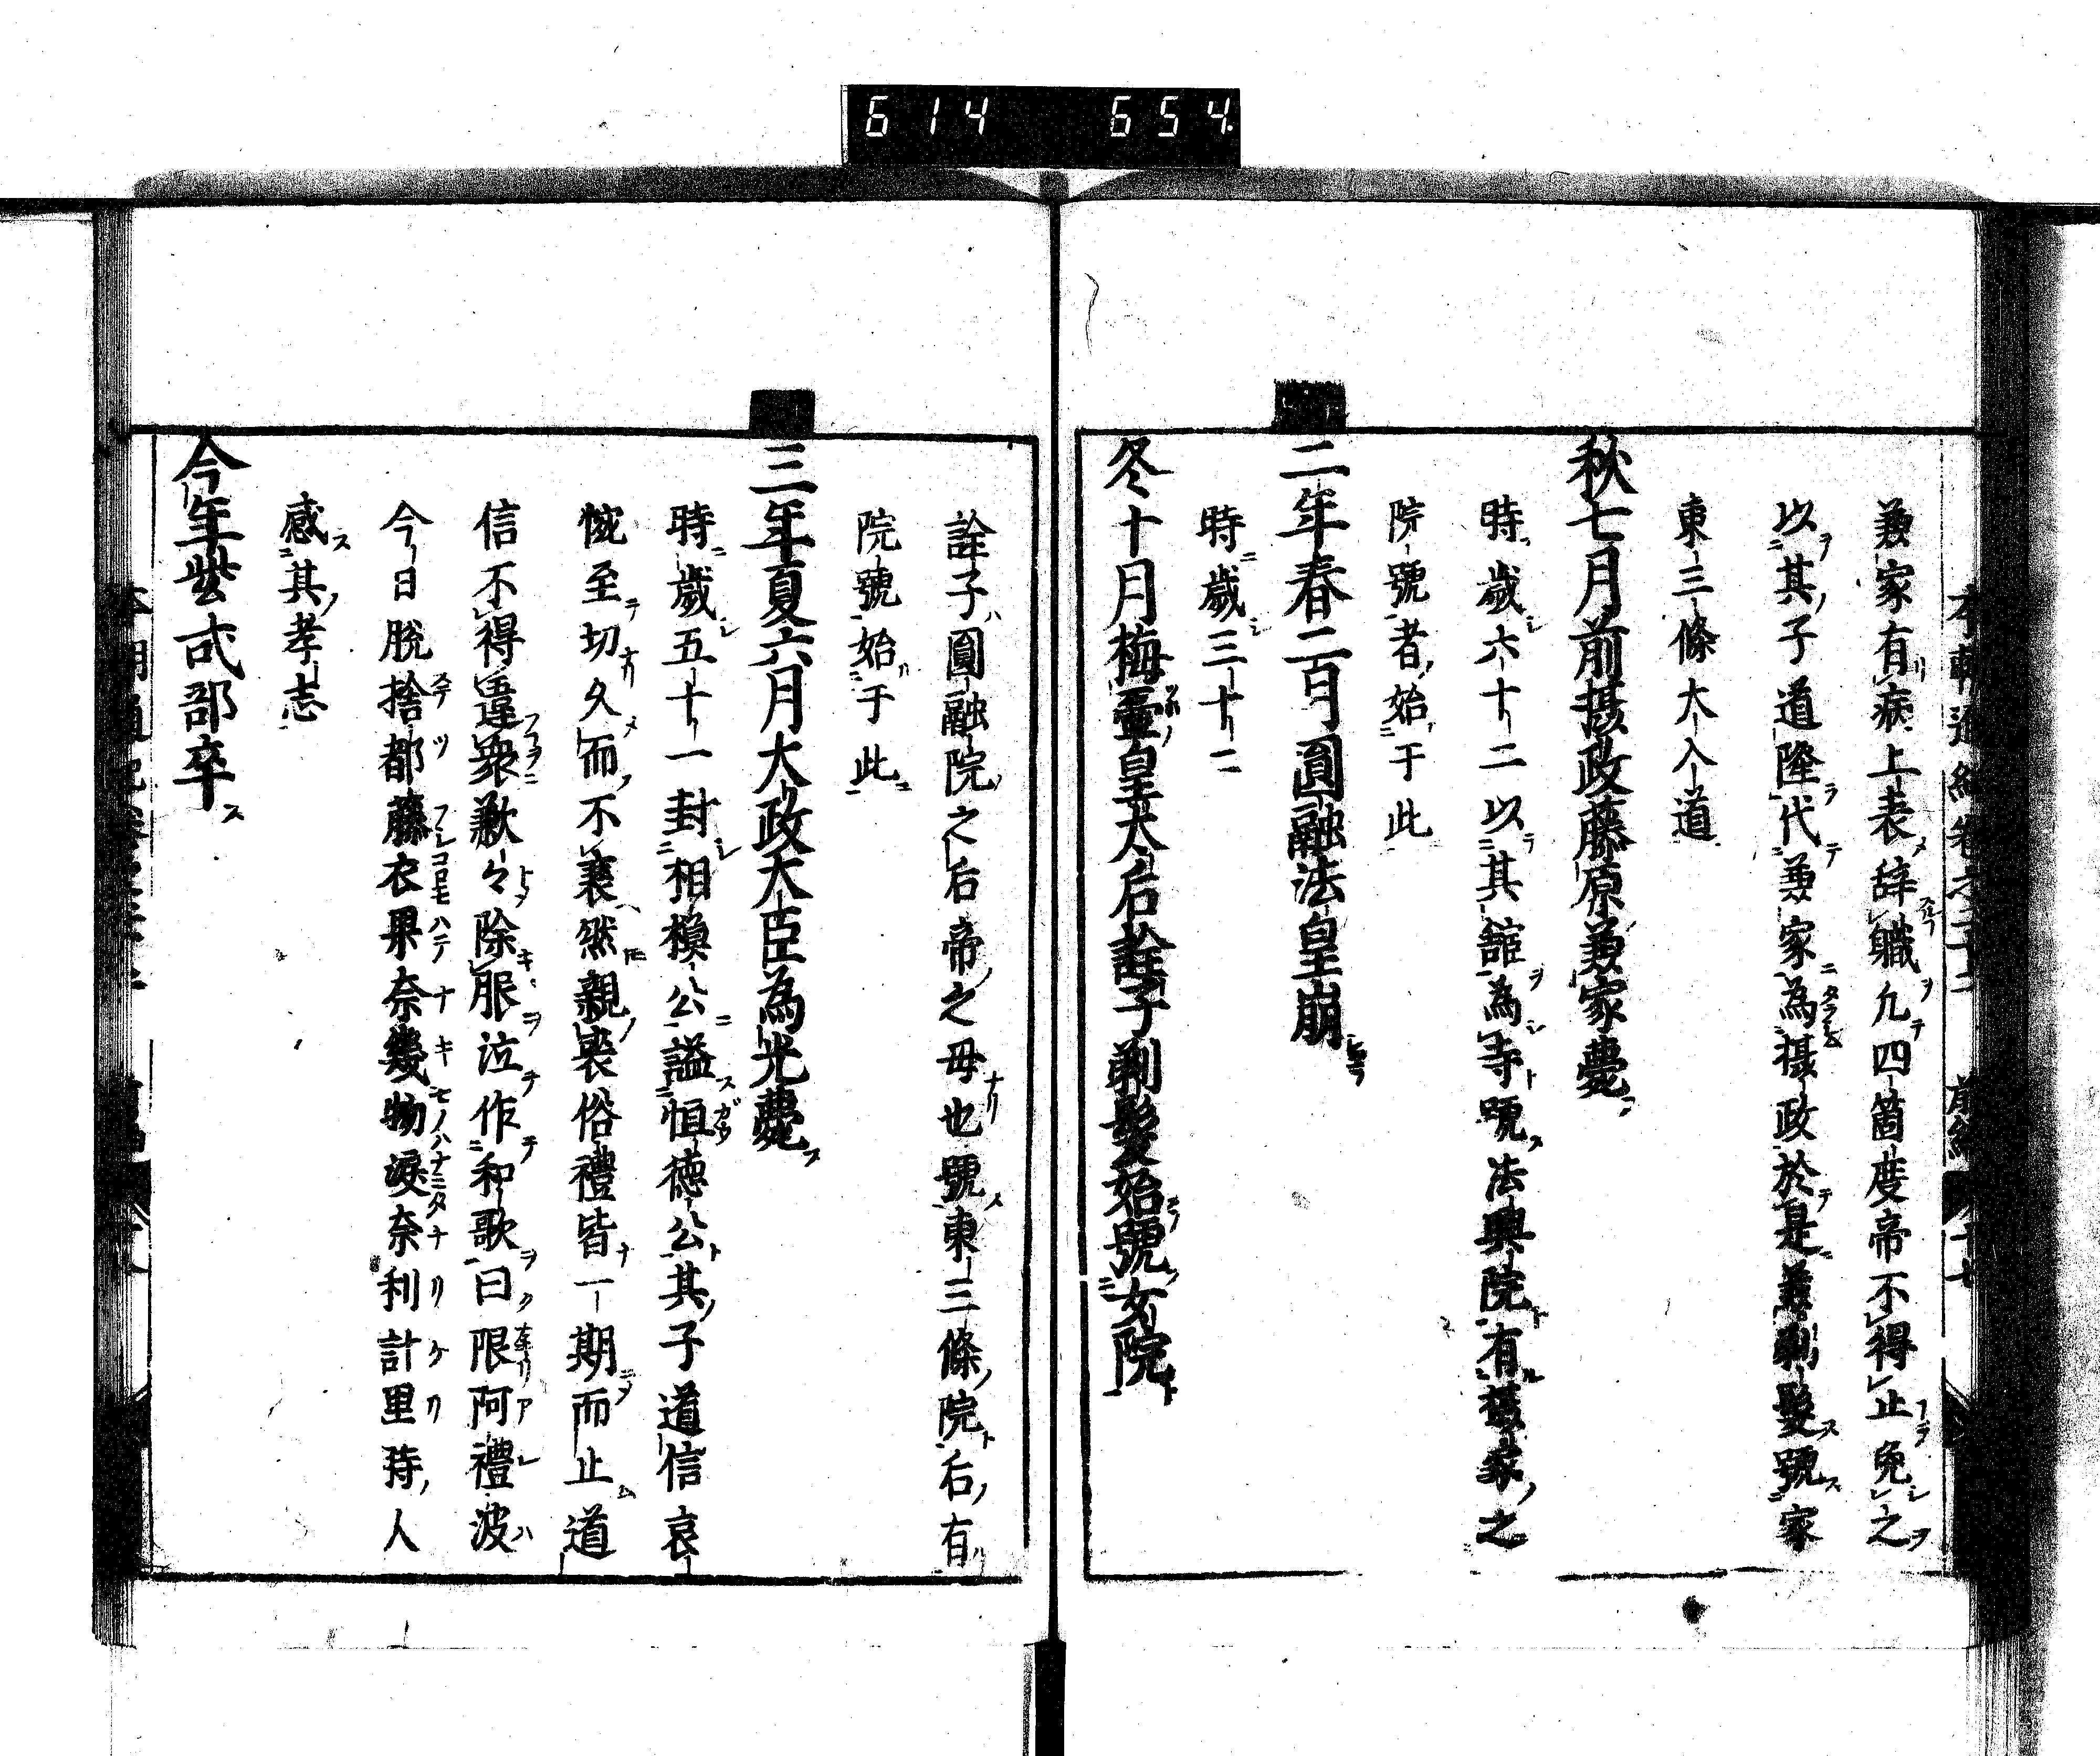 614 654
兼家有病上表辞職凢四箇度帝不得止免之
以其子道隆代兼家為摂政於是兼家剃髮號
東三條大入道
秋七月前摂政藤原兼家薨
時歲六十二以其舘為寺號法興院有摂家之
院號者始于此
二年春二月圓融法皇崩
時歲三十二
冬十月梅壷皇太后詮子剃髮始號女院
詮子圓融院之后帝之母也號東三條院后有
院號始于此
三年夏六月大政大臣為光薨
時歲五十一封相模公謚恒德公其子道信哀
慌至切久而不衰然親喪俗禮皆一期而止道
信不得違衆歎々除服泣作和歌曰限阿禮波
今日脫捨都藤衣果奈幾物淚奈利計里時人
感其孝志
今年紫式部卒